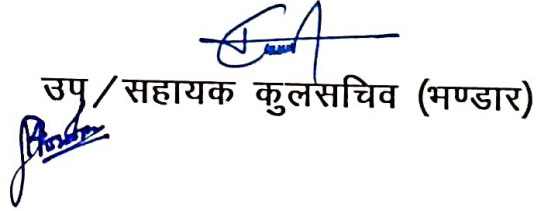 उप/सहायक कुलसचिव (भण्डार)